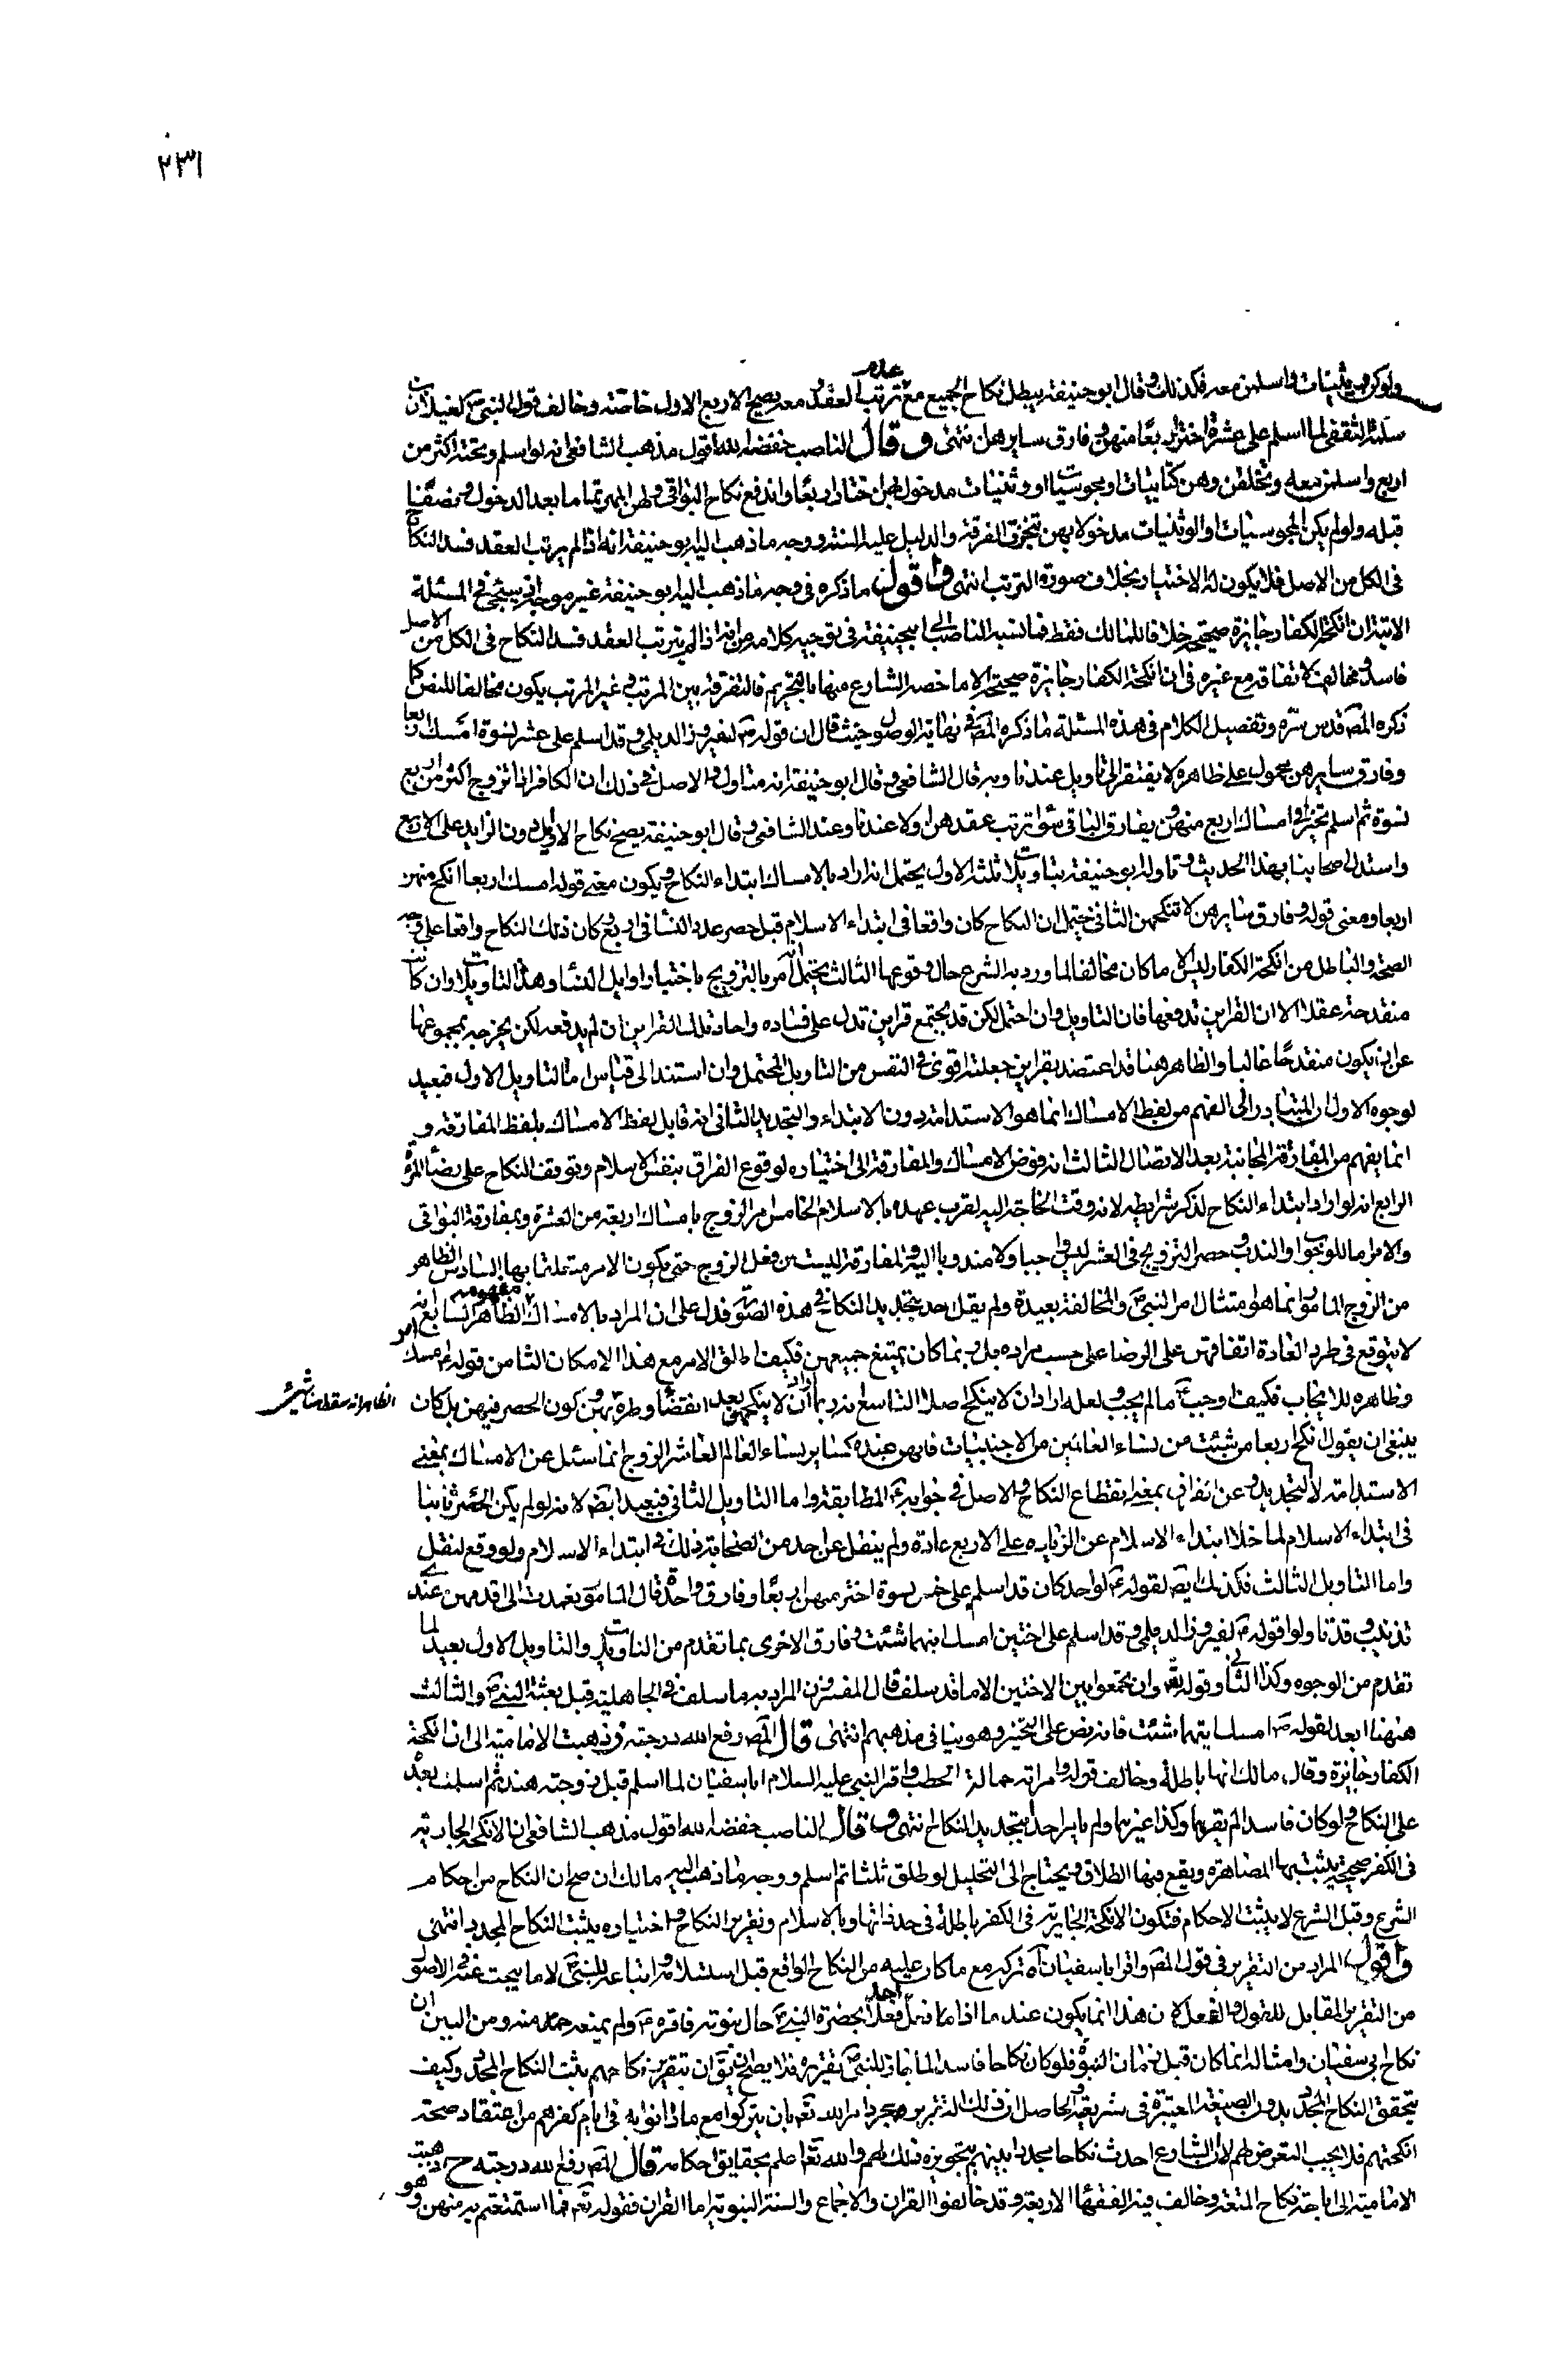 ٢٣١
ولو كن وثنيات واسلمن معه فكذلك وقال ابو حنيفة يبطل نكاح الجميع مع عدم ترتب العقد ومعه يصح الاربع الاول خاصة وخالف قول النبي ص لغيلان بن
سلمة الثقفي لما اسلم على عشرة اختر اربعًا منهن وفارق سايرهن انتهى وقال الناصب خفضه الله اقول مذهب الشافعي انه لو اسلم وتحته اكثر من
اربع واسلمن معه او تخلفن وهن كتابيات او مجوسيات او وثنيات مدخول بهن اختار اربعًا واندفع نكاح البواقي ولهن المهر تماما بعد الدخول ونصفًا
قبله ولو لم يكن المجوسيات او الوثنيات مدخولا بهن تنجزت الفرقة والدليل عليه السنة ووجه ما ذهب اليه ابو حنيفة انه اذا لم يرتب العقد فسد النكاح
في الكل من الاصل فلا يكون له الاختيار بخلاف صورة الترتب انتهى واقول ما ذكره في وجه ما ذهب اليه ابو حنيفة غير موجه اذ سيجئ في المسئلة
الاتية ان انكحة الكفار جايزة صحيحة خلافا للمالك فقط فما نسبه الناصب الى ابيحنيفة في توجيه كلامه من انه اذا لم يترتب العقد فسد النكاح في الكل من الاصل
فاسد مخالف لاتفاقه مع غيره في ان انكحة الكفار جايزة صحيحة الا ما خصه الشارع منها بالتحريم فالتفرقة بين المرتب وغير المرتب يكون مخالفا للنص كما
ذكره المص قدس سره وتفصيل الكلام في هذه المسئلة ما ذكره المص في نهاية الوصول حيث قال ان قوله ص لفيروز الديلمي وقد اسلم على عشر نسوة امسك اربعا
وفارق سايرهن محمول على ظاهره لا يفتقر الى تاويل عندنا وبه قال الشافعي وقال ابو حنيفة انه متاول والاصل في ذلك ان الكافر اذا تزوج اكثر من اربع
نسوة ثم اسلم تخير في امساك اربع منهن ويفارق الباقي سواء ترتب عقدهن او لا عندنا وعند الشافعي وقال ابو حنيفة يصح نكاح الاوايل دون الزايد على الاربع
واستدل اصحابنا بهذا الحديث وتاوله ابو حنيفة بتاويلات ثلثة الاول يحتمل انه اراد بالامساك ابتداء النكاح ويكون معنى قوله امسك اربعا انكح منهن
اربعا ومعنى قوله وفارق سايرهن لا تنكحهن الثاني يحتمل ان النكاح كان واقعا في ابتداء الاسلام قبل حصر عدد النساء في اربع وكان ذلك النكاح واقعا على وجه
الصحة والباطل من انكحة الكفار ليس الا ما كان مخالفا لما ورد به الشرع حال وقوعها الثالث يحتمل انه امر بالتزويج باختيار اوايل النساء وهذه التاويلات وان كانت
منقدحة عقلا الا ان القراين تدفعها فان التاويل وان احتمل لكن قد يجتمع قراين تدل على فساده واحاد تلك القراين ان لم يدفعه لكن يخرجه بمجموعها
عن ان يكون منقدحًا غالبا والظاهر هنا قد اعتضد بقراين جعلته اقوى في النفس من التاويل المحتمل وان استند الى قياس اما التاويل الاول فبعيد
لوجوه الاول ان المتبادر الى الفهم من لفظ الامساك انما هو الاستدامة دون الابتداء والتجديد الثاني انه قابل لفظ الامساك بلفظ المفارقة و
انما يفهم من المفارقة المجانبة بعد الاتصال الثالث انه فوض الامساك والمفارقة الى اختياره لوقوع الفراق بنفس الاسلام وتوقف النكاح على رضاء المرأة
الرابع انه لو اراد ابتداء النكاح لذكر شرايطه لانه وقت الحاجة اليه لقرب عهده بالاسلام الخامس امر الزوج بامساك اربعة من العشرة وبمفارقة البواقي
والامر اما للوجوب او الندب وحصر التزويج في العشر ليس واجبا ولا مندوبا اليه والمفارقة ليست من فعل الزوج حتى يكون الامر متعلقا بها السادس الظاهر
من الزوج المامور انما هو امتثال امر النبي ص والمخالفة بعيدة ولم يقل احد بتجديد النكاح في هذه الصورة فدل على ان المراد بالامساك مفهومه الظاهر السابع انه
لا يتوقع في طرد العادة اتفاقهن على الرضا على حسب مراده بل ربما كان يمتنع جميعهن فكيف اطلق الامر مع هذا الامكان الثامن قوله ع امسك امر
وظاهره للايجاب فكيف اوجب ع ما لم يجب ولعله اراد ان لا ينكح اصلا التاسع انه ربما اراد ان لا ينكحهن بعد انقضاء وطره بهن كون الحصر فيهن بل كان
الظاهر انه سقط هنا شيئ
ينبغي ان يقول انكح اربعا من شئت من نساء العالمين من الاجنبيات فانهن عنده كساير نساء العالم العاشر الزوج انما سئل عن الامساك بمعنى
الاستدامة لا التجديد وعن الفراق بمعنى انقطاع النكاح والاصل في جوابه ع المطابقة واما التاويل الثاني فبعيد ايض لانه لو لم يكن الحصر ثابتا
في ابتداء الاسلام لما خلا ابتداء الاسلام عن الزيادة على الاربع عادة ولم ينقل عن احد من الصحابة ذلك في ابتداء الاسلام ولو وقع لنقل
واما التاويل الثالث فكذلك ايض لقوله ع لواحد كان قد اسلم على خمس نسوة اختر منهن اربعًا وفارق واحدة قال المامور فعمدت الى اقدمهن عندي
وقد تاولوا قوله ص لفيروز الديلمي وقد اسلم على اختين امسك ايتهما شئت وفارق الاخرى بما تقدم من التاويلات والتاويل الاول بعيد لما
تقدم من الوجوه وكذا الثاني وقوله تعالى وان تجمعوا بين الاختين الا ما قد سلف قال المفسرون المراد به ما سلف في الجاهلية قبل بعثة النبي ص والثالث
هنهنا ابعد لقوله ص امسك ايتهما شئت فانه نص على التخيير وهو ينافي مذهبهم انتهى قال المص رفع الله درجته و ذهبت الامامية الى ان انكحة
الكفار جايزة وقال مالك انها باطلة وخالف قوله وامراته حمالة الحطب واقر النبي عليه السلام ابا سفيان لما اسلم قبل زوجته هند ثم اسلمت بعده
على النكاح ولو كان فاسدا لم يقرهما وكذا غيرهما ولم يامر احدا بتجديد النكاح انتهى وقال الناصب خفضه الله اقول مذهب الشافعي ان الانكحة الجارية
في الكفر صحيحة يثبت بها المصاهرة ويقع فيها الطلاق ويحتاج الى التحليل لو طلق ثلثا ثم اسلم ووجه ما ذهب اليه مالك ان صح ان النكاح من احكام
الشرع وقبل الشرع لا يثبت الاحكام فتكون الانكحة الجارية في الكفر باطلة في حد ذاتها وبالاسلام وتقرير النكاح واختياره يثبت النكاح المجدد انتهى
واقول المراد من التقرير في قول المص واقر ابا سفيان آه تركه مع ما كان عليه من النكاح الواقع قبل استسلامه واتباعه للنبي ص لا ما يبحث عنه في الاصول
من التقرير المقابل للقول والفعل لان هذا انما يكون عند ما اذا ما فعل احد فعلا بحضرة النبي ص حال نبوته فاقره ص ولم يمنعه منه ومن البين ان
نكاح ابي سفيان وامثاله انما كان قبل زمان النبوة فلو كان نكاحا فاسدا لما جاز للنبي ص تقريره فلا يصلح ان يق ان تقرير نكاحهم يثبت النكاح المجدد وكيف
يتحقق النكاح المجدد بدون الصيغة المعتبرة في شريعته والحاصل ان ذلك التقرير بمجرد امر الله تعالى بان يتركوا مع ما دانوا به في ايام كفرهم من اعتقاد صحة
انكحتهم فلا يجب التعرض لهم لا ان الشارع احدث نكاحا مجددا بينهم بتجويزه ذلك لهم والله تعالى اعلم بحقايق احكامه قال المص رفع الله درجته ح ذهبت
الامامية الى اباحة نكاح المتعة وخالف فيه الفقهاء الاربعة وقد خالفوا القران والاجماع والسنة النبوية اما القران فقوله تعالى فما استمتعتم به منهن وهو